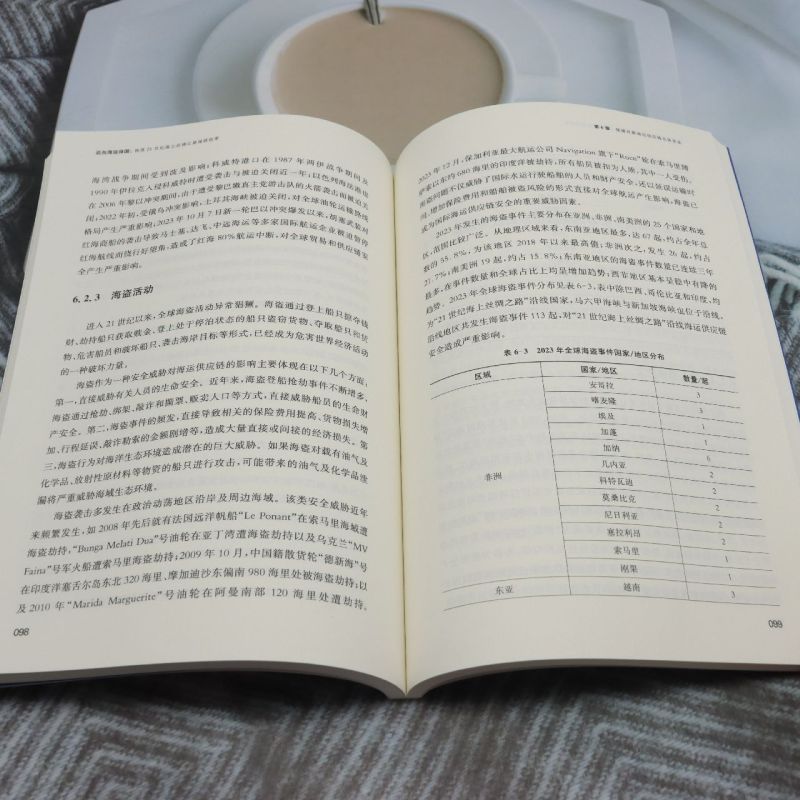 迈向海运强国：构建21世纪海上丝绸之路保障体系
海湾战争期间受到波及影响；科威特港口在1987年两伊战争期间及
1990年伊拉克入侵科威特时遭受袭击与被迫关闭近一年；以色列海法港也
在2006年黎以冲突期间，由于遭受黎巴嫩真主党游击队的火箭袭击而被迫关
闭；2022年初，受俄乌冲突影响，土耳其海峡被迫关闭，对全球油轮运输路线
格局产生严重影响。2023年10月7日新一轮巴以冲突爆发以来，胡塞武装对
红海商船的袭击导致马士基、达飞、中远海运等多家国际航运企业被迫暂停
红海航线而绕行好望角，造成了红海80%航运中断，对全球贸易和供应链安
全产生严重影响。
6.2.3 海盗活动
进入21世纪以来，全球海盗活动异常猖獗。海盗通过登上船只掠夺钱
财、劫持船只获取赎金、登上处于停泊状态的船只盗窃货物、夺取船只和货
物、危害船员和破坏船只、袭击海岸目标等形式，已经成为危害世界经济活动
的一种破坏力量。
海盗作为一种安全威胁对海运供应链的影响主要体现在以下几个方面：
第一，直接威胁有关人员的生命安全。近年来，海盗登船抢劫事件不断增多，
海盗通过抢劫、绑架、敲诈和撕票、贩卖人口等方式，直接威胁船员的生命财
产安全。第二，海盗事件的频发，直接导致相关的保险费用提高、货物损失增
加、行程延误、敲诈勒索的金额剧增等，造成大量直接或间接的经济损失。第
三，海盗行为对海洋生态环境造成潜在的巨大威胁。如果海盗对载有油气及
化学品、放射性原材料等物资的船只进行攻击，可能带来的油气及化学品泄
漏将严重威胁海域生态环境。
海盗袭击多发生在政治动荡地区沿岸及周边海域。该类安全威胁近年
来频繁发生，如2008年先后就有法国远洋帆船“Le Ponant”在索马里海域遭
海盗劫持，“Bunga Melati Dua”号油轮在亚丁湾遭海盗劫持以及乌克兰“MV
Faina”号军火船遭索马里海盗劫持；2009年10月，中国籍散货轮“德新海”号
在印度洋塞舌尔岛东北320海里、摩加迪沙东偏南980海里处被海盗劫持；以
及2010年“Marida Marguerite”号油轮在阿曼南部120海里处遭劫持。
098
2023年12月，保加利亚最大航运公司Navigation旗下“Ruen”轮在索马里博
萨索以东约680海里的印度洋被劫持，所有船员被扣为人质，其中一人受伤。
海盗问题不仅威胁了国际水运行驶船舶的人员和财产安全，还以延误运输时
间、增加保险费用和船舶被盗风险的形式直接对全球航运产生影响，海盗已
成为国际海运供应链安全的重要威胁因素。
2023年发生的海盗事件主要分布在亚洲、非洲、南美洲的25个国家和地
区，范围比较广泛。从地理区域来看，东南亚地区最多，达67起，约占全年总
数的55.8%，为该地区2018年以来最高值；非洲次之，发生26起，约占
21.7%；南美洲19起，约占15.8%；东南亚地区的海盗事件数量已连续三年
最多，在事件数量和全球占比上均呈增加趋势；西非地区基本呈稳中有降的
趋势。2023年全球海盗事件分布见表6-3。表中除巴西、哥伦比亚和印度，均
为“21世纪海上丝绸之路”沿线国家，马六甲海峡与新加坡海峡也位于沿线，
沿线地区共发生海盗事件113起，对“21世纪海上丝绸之路”沿线海运供应链
安全造成严重影响。
表6-3 2023年全球海盗事件国家/地区分布
区域 国家/地区 数量/起
非洲 安哥拉 3
喀麦隆 3
埃及 1
加蓬 1
加纳 6
几内亚 2
科特瓦迪 2
莫桑比克 2
尼日利亚 2
塞拉利昂 2
索马里 1
刚果 1
东亚 越南 3
099